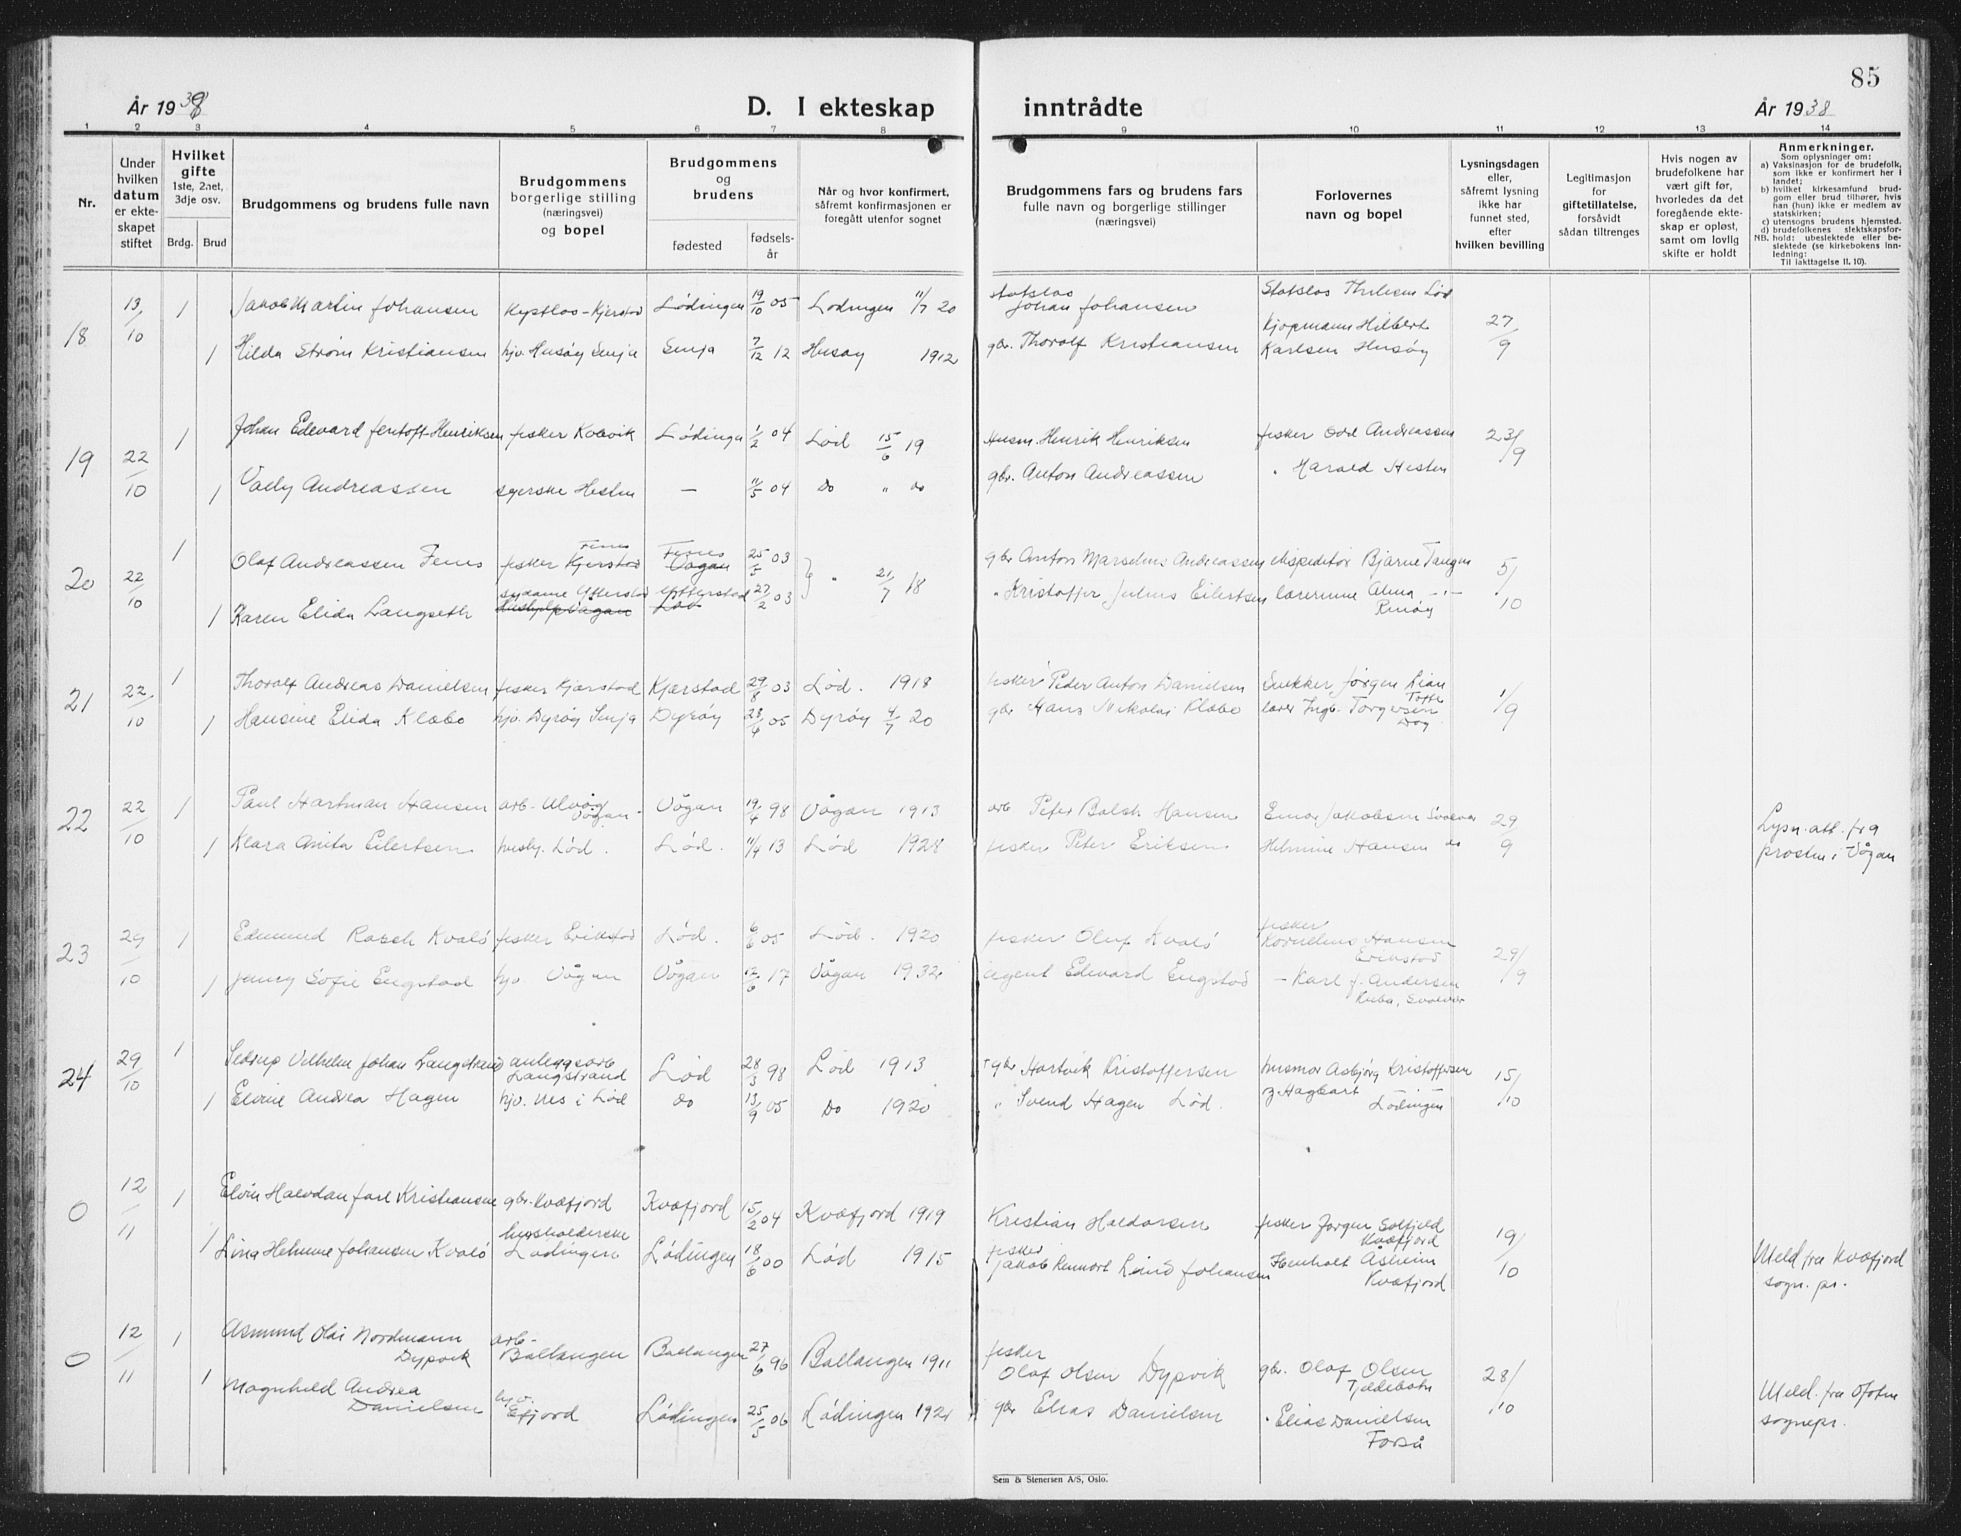 85
År 1938
D. I ekteskap inntrådte
År 1938
1 2 3 4 5 6 7 8 9 10 11 12 13 14
Nr.
Under hvilken datum er ekteskapet stiftet
Hvilket gifte 1ste, 2net, 3dje osv.
Brdg. Brud
Brudgommens og brudens fulle navn
Brudgommens borgerlige stilling (næringsvei) og bopel
Brudgommens og brudens
fødested
fødsels-år
Når og hvor konfirmert, såfremt konfirmasjonen er foregått utenfor sognet
Brudgommens fars og brudens fars fulle navn og borgerlige stillinger (næringsvei)
Forlovernes navn og bopel
Lysningsdagen eller, såfremt lysning ikke har funnet sted, efter hvilken bevilling
Legitimasjon for giftetillatelse, forsåvidt sådan tiltrenges
Hvis nogen av brudefolkene har vært gift før, hvorledes da det foregående ekteskap er opløst, samt om lovlig skifte er holdt
Anmerkninger.
Som oplysninger om:
a) Vaksinasjon for de brudefolk, som ikke er konfirmert her i landet;
b) hvilket kirkesamfund brudgom eller brud tilhører, hvis han (hun) ikke er medlem av statskirken;
c) utensogns brudens hjemsted.
d) brudefolkenes slektskapsforhold: ubeslektede eller beslektede (se kirkebokens innledning:
NB.
Til iakttagelse II, 10).
18 13/10 1 Jakob Martin Johansen Kjerstad Lødingen 19/10 05 Lødingen 11/7 20 Johan Johansen
1 Hilda Strøm Kristiansen hjv. Husøy Senja Senja 7/12 12 Husøy 1912 gbr. Thoralf Kristiansen Kjøpmann Hilbert Karlsen Husøy 27/9
19 22/10 1 Johan Edevard Jentoft Henriksen fisker Lødingen 1/2 04 Lød 15/6 19 Husm. Henrik Henriksen fisker Odd Andreassen 23/9
1 Vally Andreassen syerske Hesten — 11/5 04 Do " do gbr. Anton Andreassen " Harald Hesten
20 22/10 1 Olaf Andreassen Fenes fisker Kjerstad Fenes Fenes Vågan 25/5 03 " 21/7 18 gbr Anton Marselius Andreassen ekspeditør Bjarne Tangen 5/10
1 Karen Elida Langseth sydame Offerstad Lød 27/2 03 " Kristoffer Julius Eilertsen lærerinne Alma —"—
21 22/10 1 Thoralf Andreas Danielsen fisker Kjærstad Kjærstad 29/8 03 Lød. 1918 fisker Peder Anton Danielsen Snekker Jørgen Lian 1/9
1 Hansine Elida Klæbo hjv. Dyrøy Senja Dyrøy 23/4 05 Dyrøy 4/7 20 gbr Hans Nikolai Klæbo lærer Ingb. Torgersen
22 22/10 1 Paul Hartman Hansen arb. Ulvåg Vågan Vågan 19/4 98 Vågan 1913 arb Peter Hansen Einar Jakobsen Svolvær 29/9
1 Klara Anita Eilertsen husbj. Lød. Lød. 11/4 13 Lød 1928 fisker Peter Eriksen Helmine Hansen do
Lysn. att. fra prosten i Vågan
23 29/10 1 Edmund Rasch Kvalø fisker Erikstad Lød. 6/6 05 Lød. 1920 fisker Oluf Kvalø fisker Kornelius Hansen Erikstad 29/9
1 Jenny Sofie Engstad hjv Vågan Vågan 12/6 17 Vågan 1932 agent Edevard Engstad – Karl J. Andersen Kuba, Svolvær
24 29/10 1 Vilhelm Johan Langstrand anleggsarb Langstrand Lød 28/3 98 Lød 1913 † gbr Hartvik Kristoffersen husmor Asbjørg Kristoffersen 15/10
1 Elvine Andrea Hagen hjv. Nes i Lød Do 13/9 05 Do 1920 " Svend Hagen Lød. og Hagbart — Lødingen
0 12/11 1 Elvin Halvdan Jarl Kristiansen gbr. Kvæfjord Kvæfjord 15/2 04 Kvæfjord 1919 Kristian Haldorsen fisker Jørgen Solfjeld Kvæfjord 19/10
1 Lina Helmine Johansen Kvalø husholderske Lødingen Lødingen 18/6 00 Lød 1915 fisker Jakob Lind Johansen Åsheim Kvæfjord
Meld. fra Kvæfjord sogn. pr.
0 12/11 1 Asmund Olai Nordmann Dypvik arb. Ballangen Ballangen 27/6 96 Ballangen 1911 fisker Olaf Olsen Dypvik gbr. Olaf Olsen Tjeldebotn 28/10
1 Magnhild Andrea Danielsen hjv. Efjord Lødingen 25/5 06 Lødingen 1921 gbr Elias Danielsen " Elias Danielsen Forså
Meld. fra Ofoten sognepr.
Sem & Stenersen A/S, Oslo.